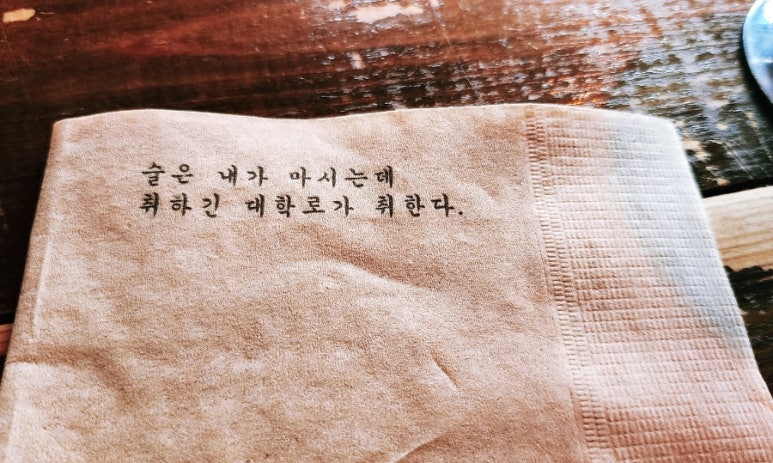 술은 내가 마시는데
취하긴 대학로가 취한다.